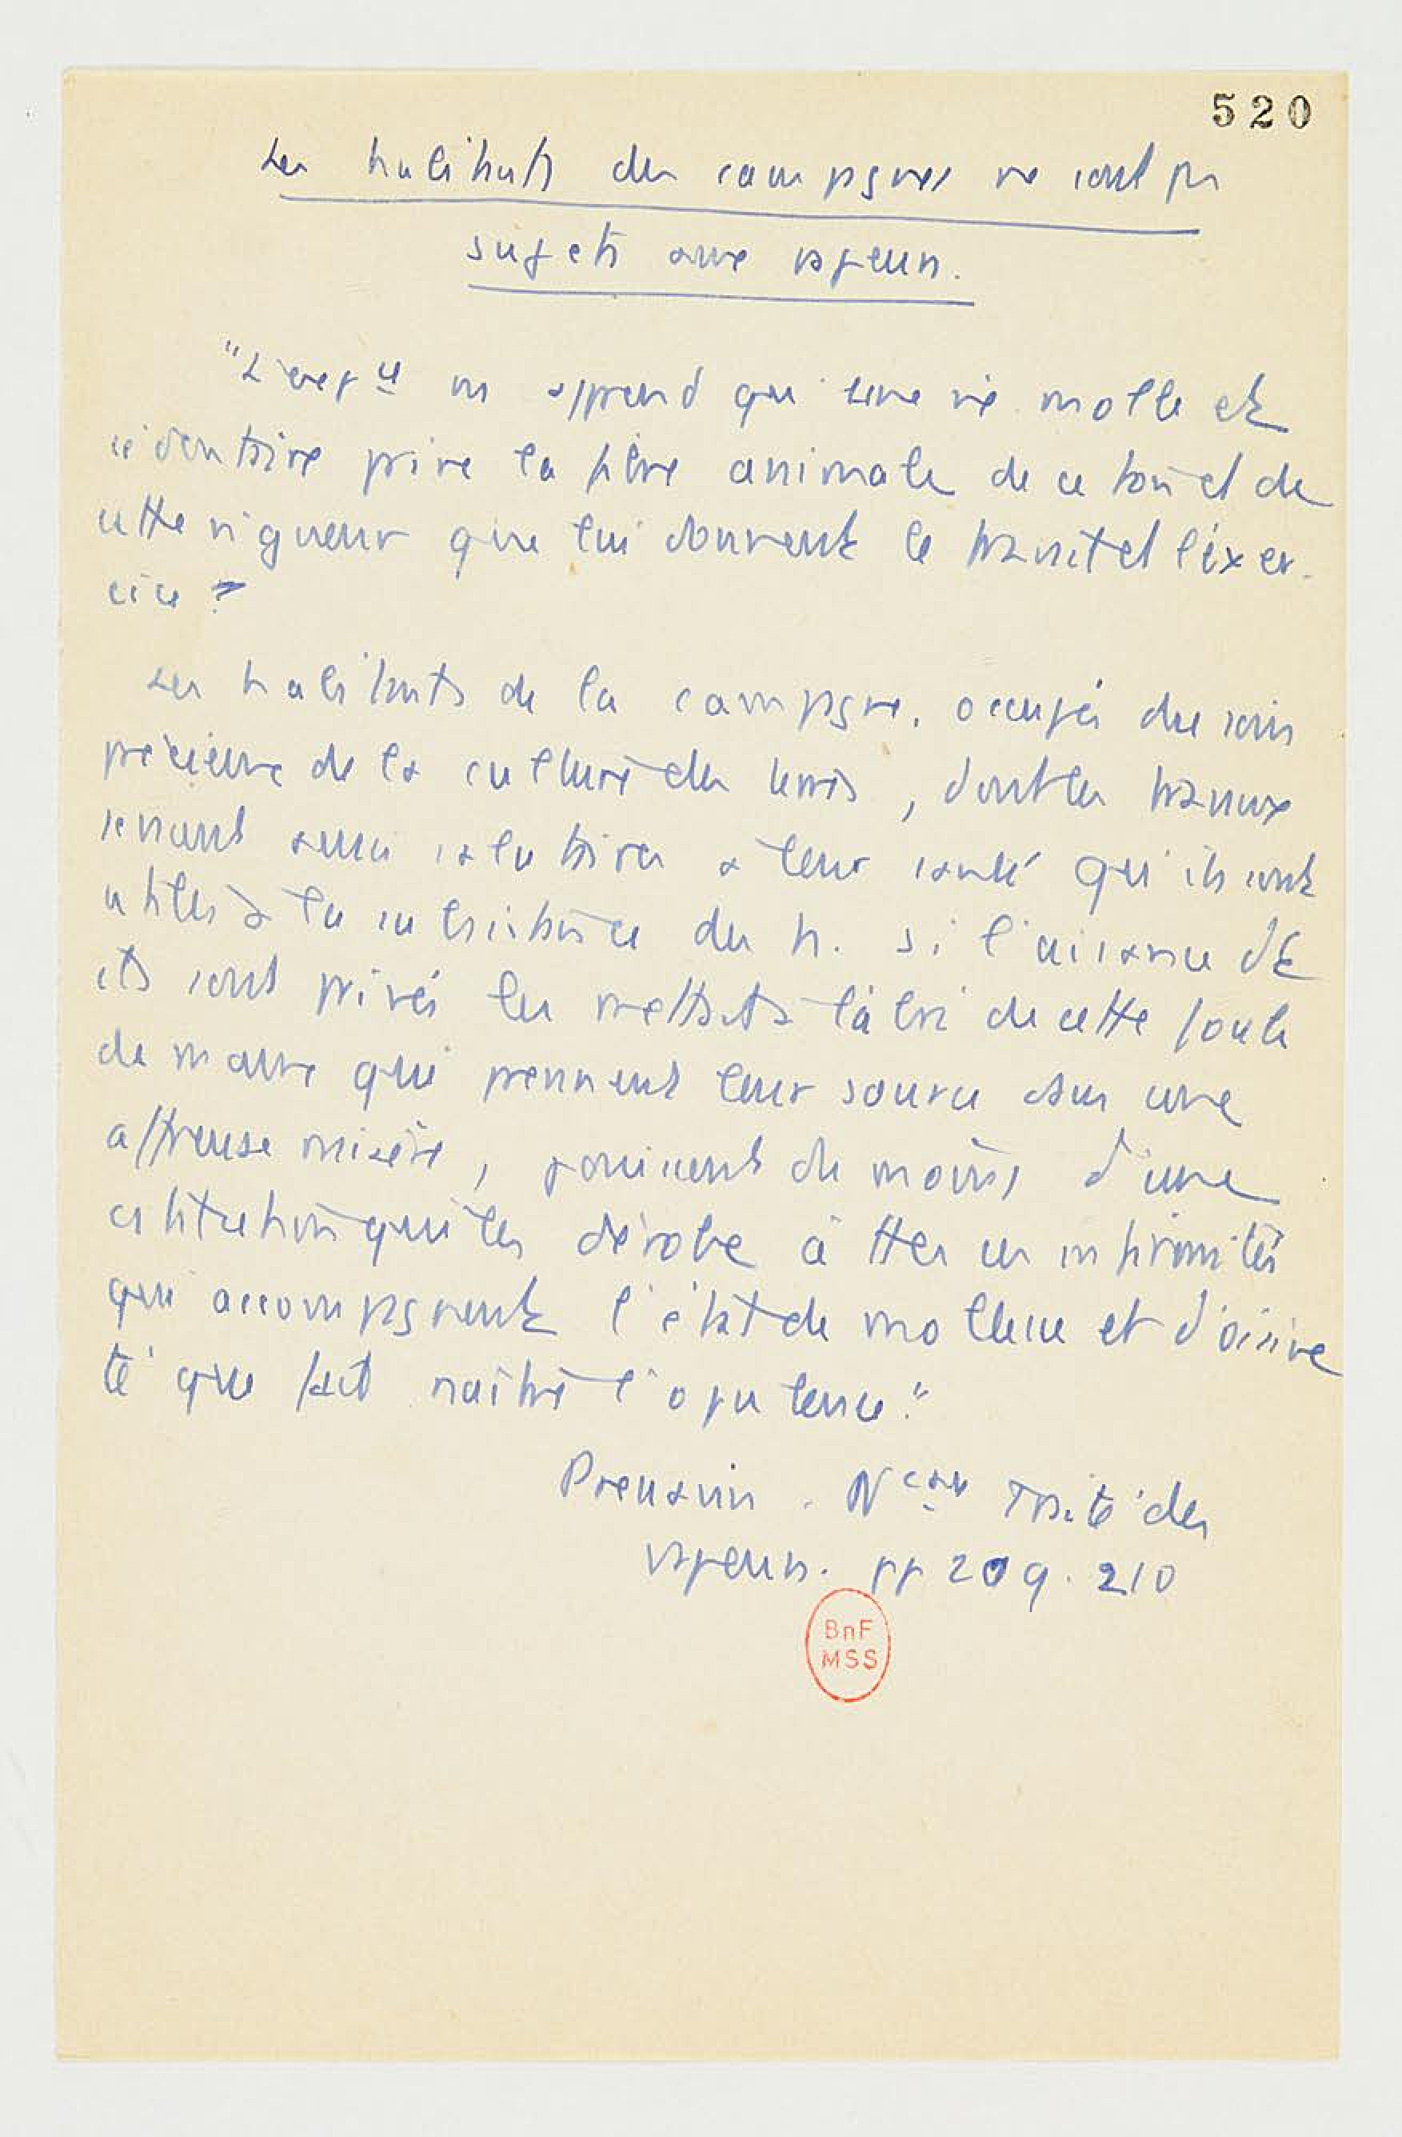 520
Les habitants des campagnes ne sont pas
sujets aux vapeurs.
"L'expce ns apprend qu'une vie molle et
sédentaire prive la fibre animale de ce ton et de
cette vigueur que lui donnent le travail et l'exer-
cice."
Les habitants de la campagne, occupés du soin
précieux de la culture des terres, dont les travaux
sont aussi salutaires à leur santé qu'ils sont
utiles à la subsistance des h. si l'aisance dt
ils sont privés les mettait à l'abri de cette foule
de maux qui prennent leur source dans une
affreuse misère, jouissent du moins d'une
constitution qui les dérobe à ttes ces infirmités
qui accompagnent l'état de mollesse et d'oisive
té que fait naître l'opulence."
Pressavin. Nveau Traité des
vapeurs. pp 209. 210
BnF
MSS